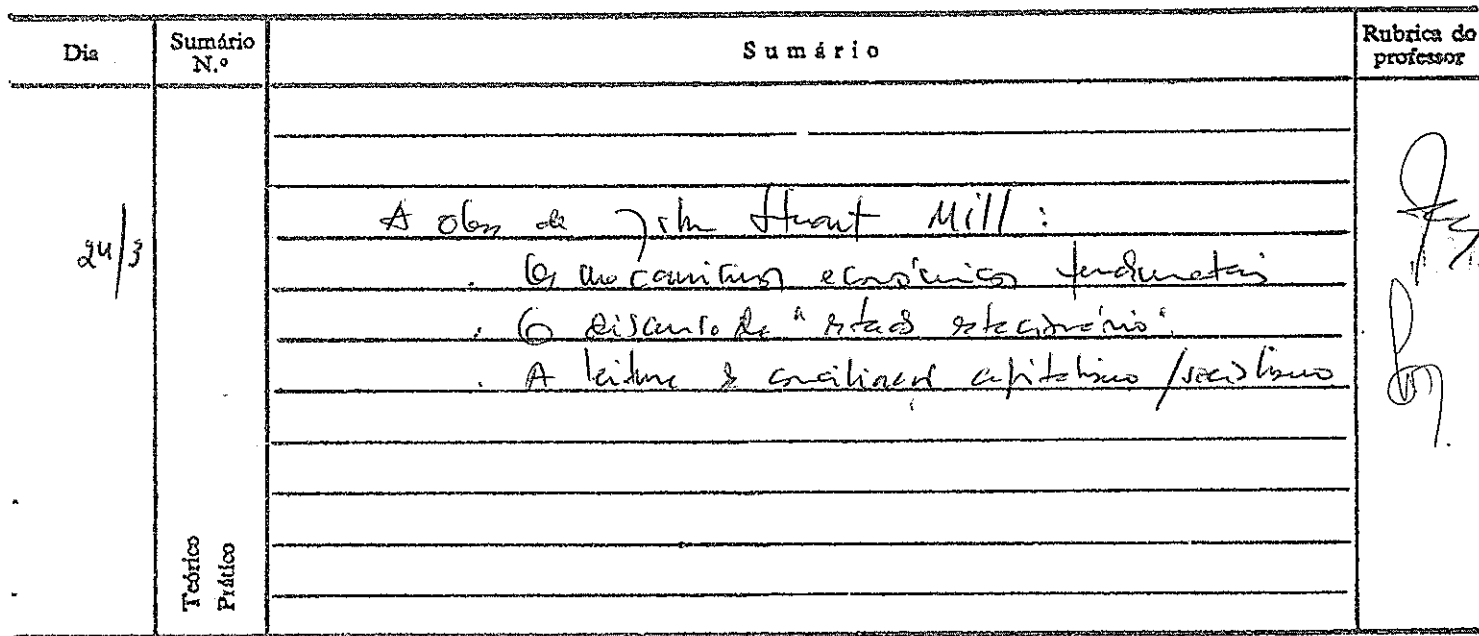 Dia
Sumário N.º
Sumário
Rubrica do professor
24/3
A obra de John Stuart Mill :
. Os mecanismos económicos fundamentais
. O discurso do "estado estacionário".
. A leitura de conciliação capitalismo / socialismo
Teórico
Prático